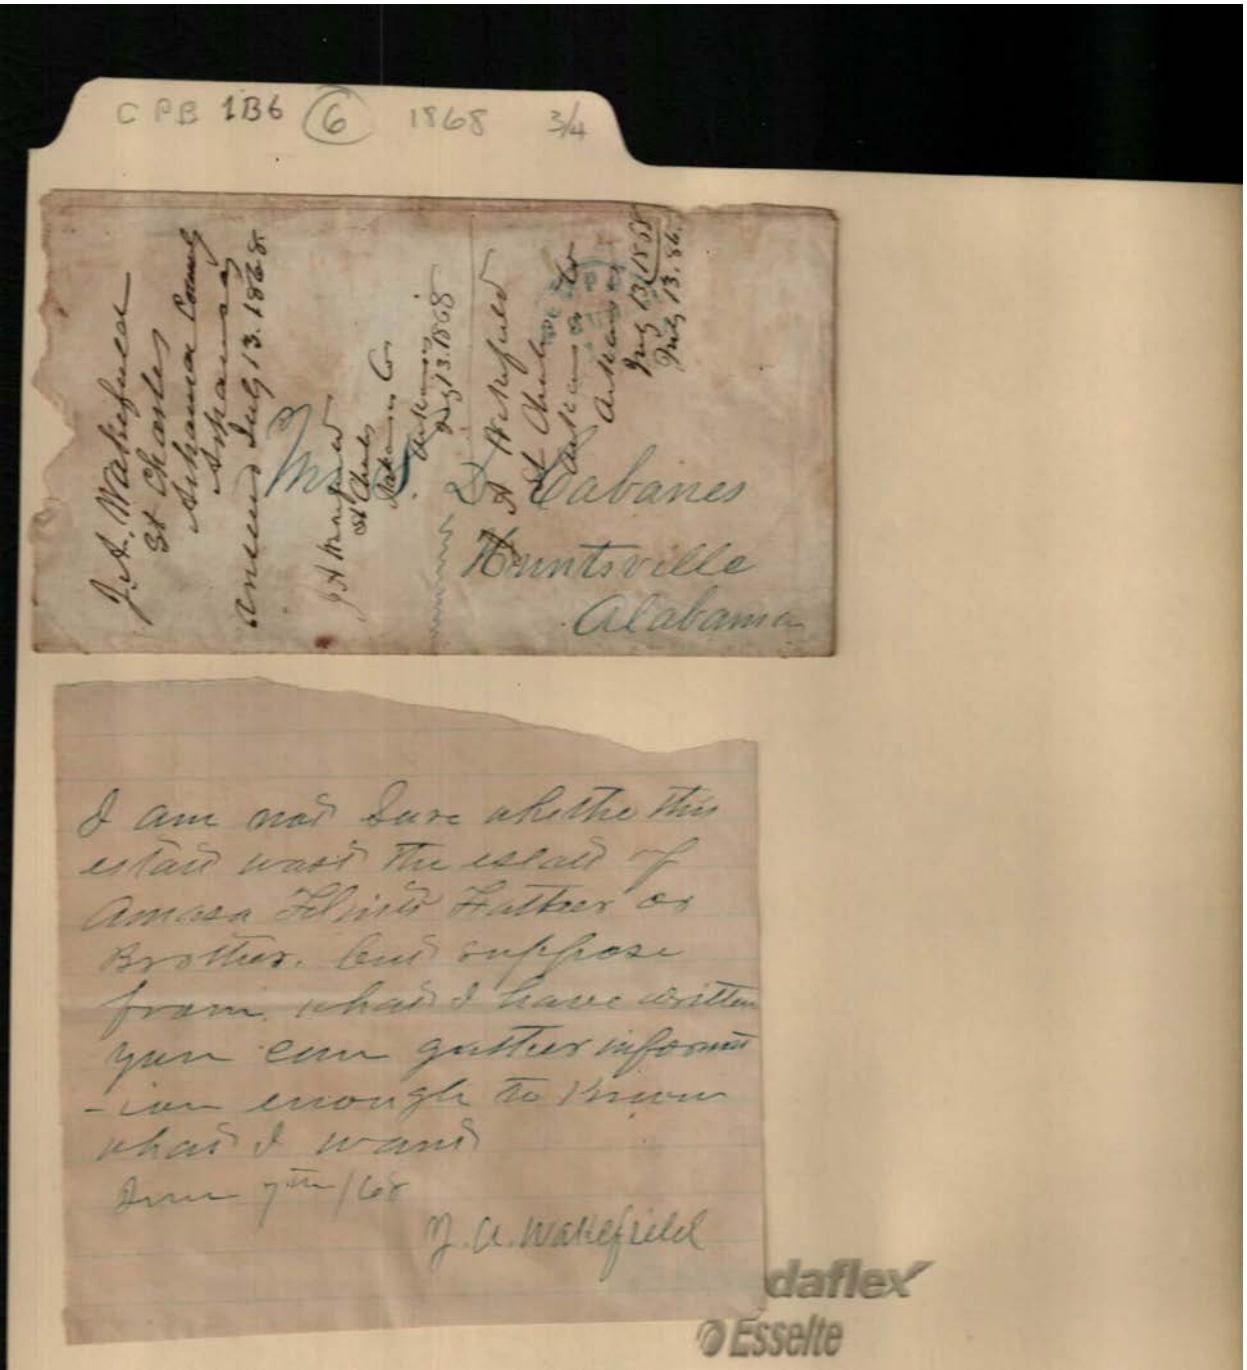 CPB 1B6 6 1868 3/4
J. A. Wakefield
St Charles
Arkansas County
Arkansas
July 13. 1868
St Charles
Arkansas Co
Arkansas
July 13. 1868
A Wakefield
St Charles
Arkansas Co
Arkansas
July 13 1868
July 13. 86
D Cabanes
Huntsville
Alabama
I am not Sure whethe this
estate wast the estate of
Amasa Father or
Brother. but suppose
from what I have written
you can gather informat
-ion enough to Know
what I want
June 7th /68
J. A. Wakefield
daflex
Esselte